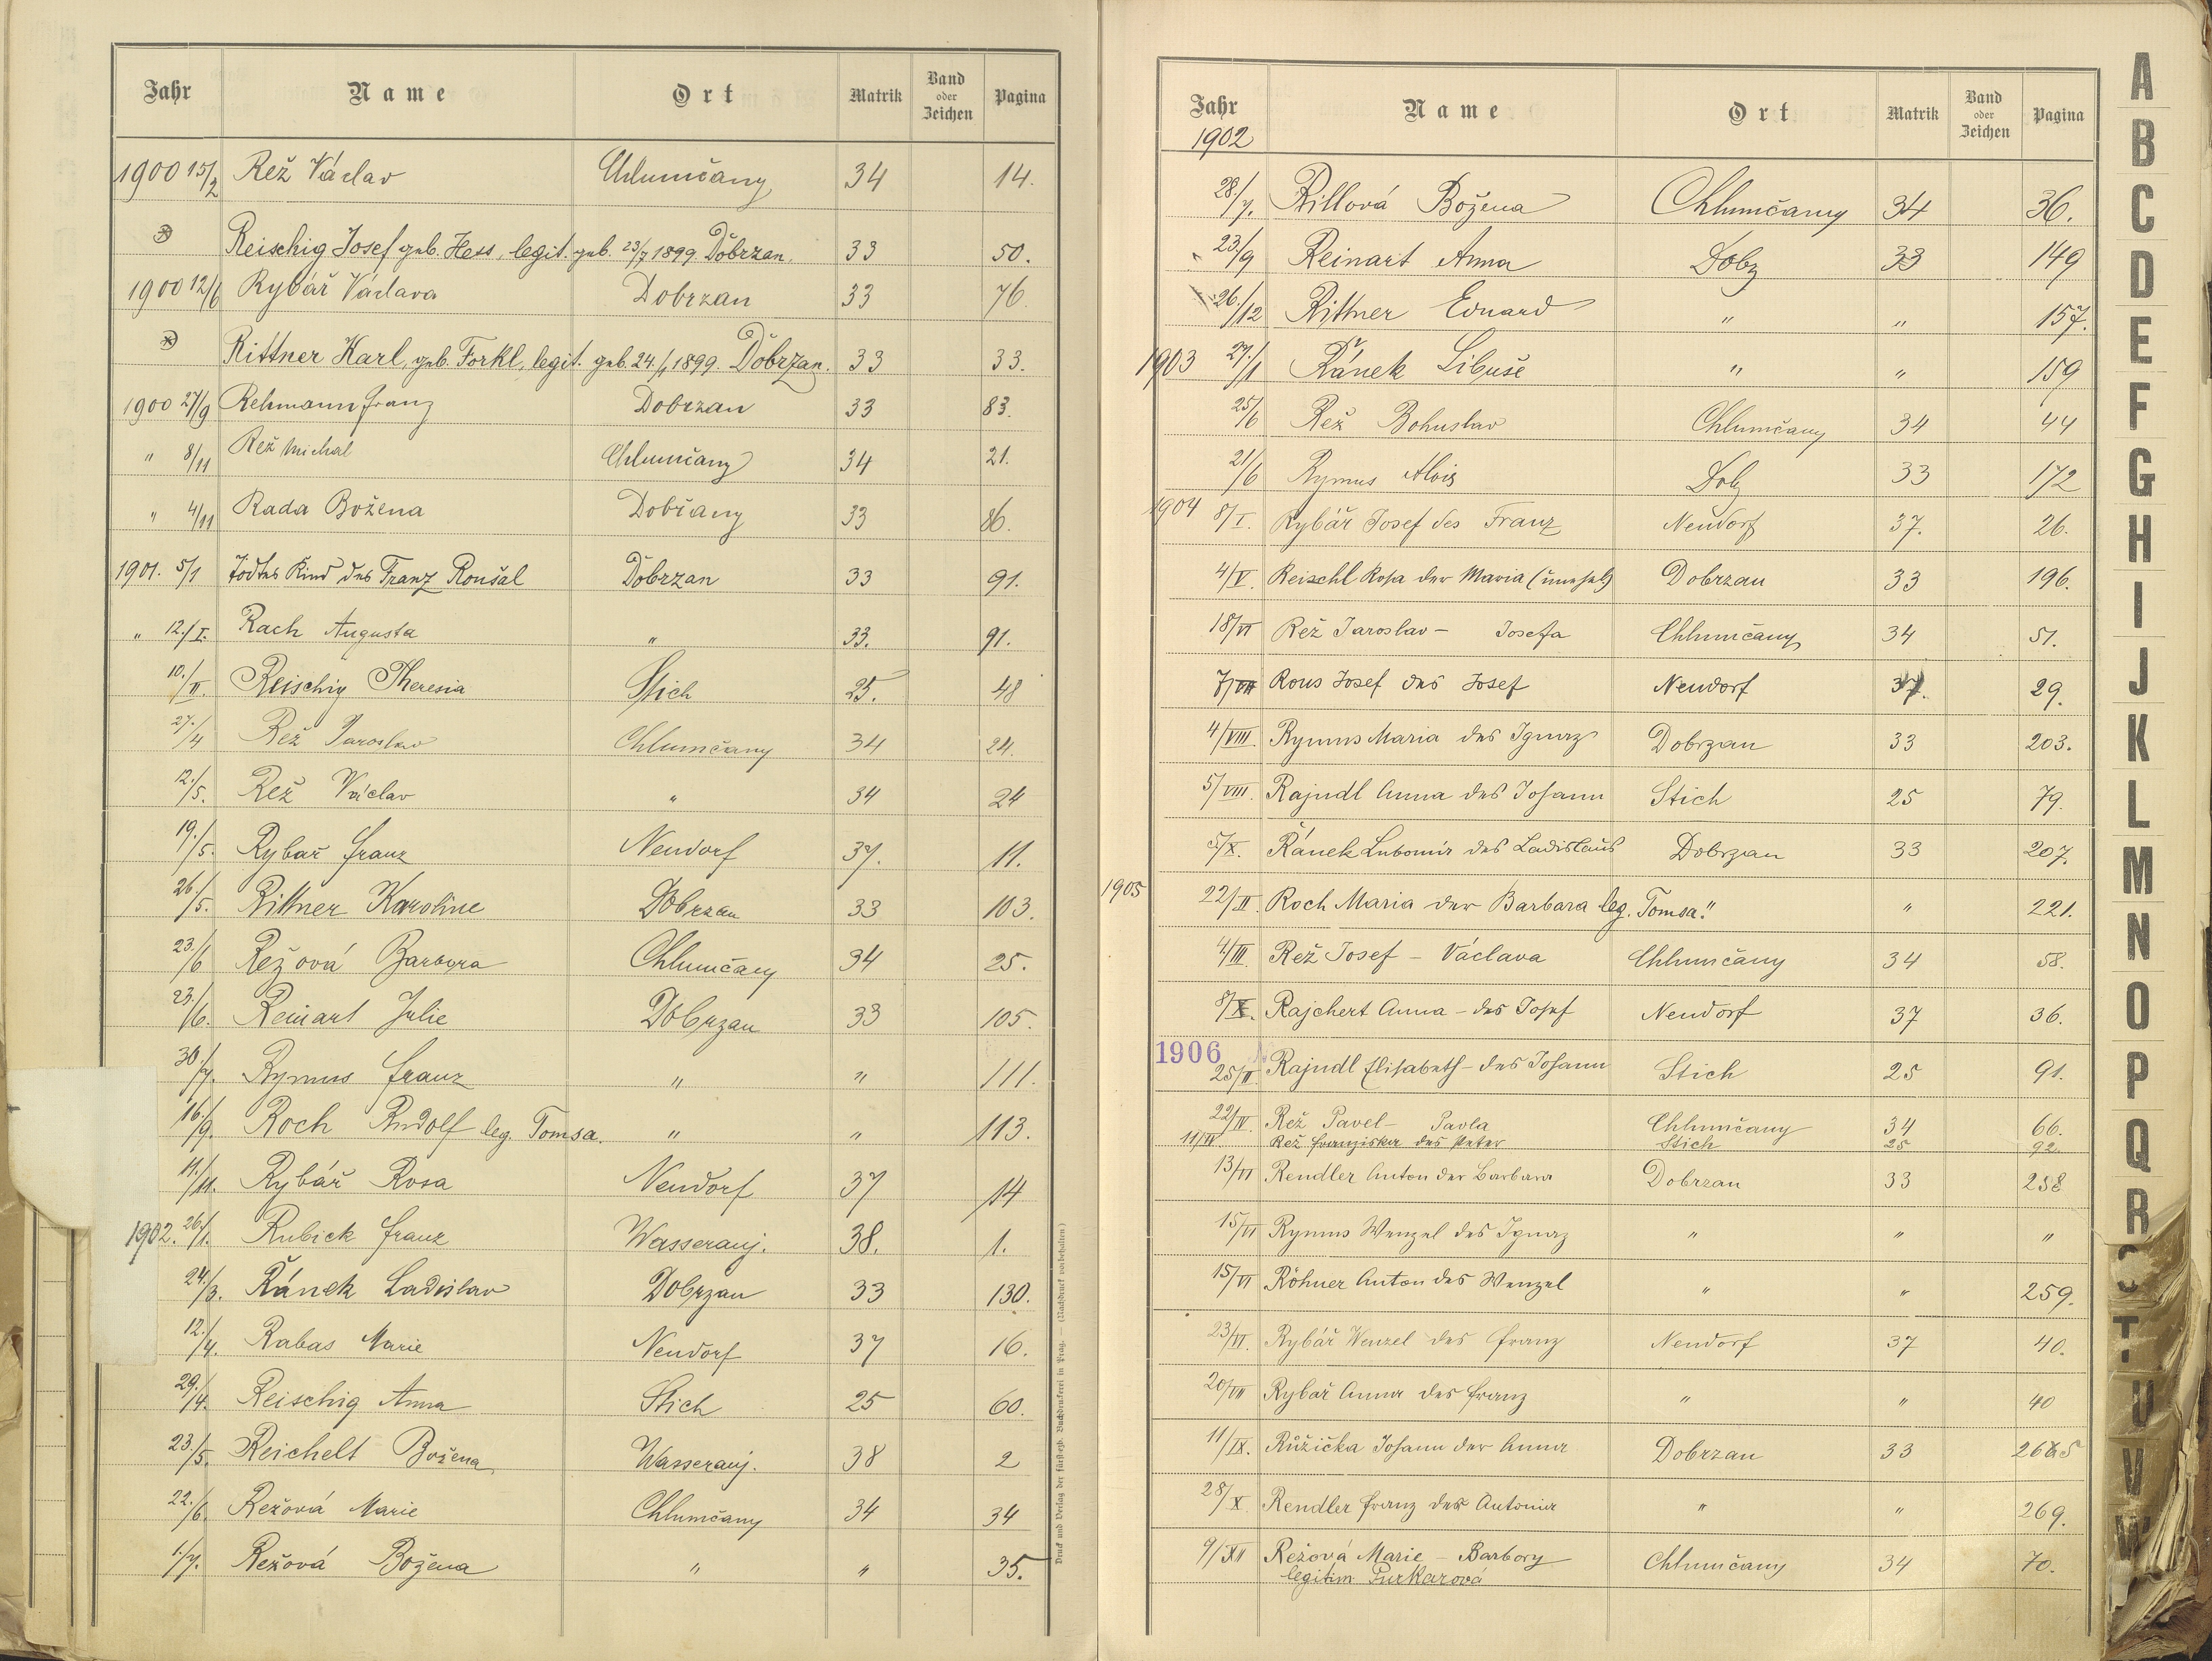 Jahr Name Ort Matrik Band oder Zeichen Pagina
1900 15/2 Rež Václav Chlumčany 34 14.
Reischig Josef geb. Hess, legit. geb. 23/7 1899 Dobrzan. 33 50.
1900 12/6 Rybář Václava Dobrzan 33 76.
Rittner Karl, geb. Forkl, legit. geb. 24./1 1899. Dobrzan. 33 33.
1900 27/9 Rehmann Franz Dobrzan 33 83.
" 8/11 Rež Michal Chlumčany 34 21.
" 4/11 Rada Božena Dobřany 33 86.
1901. 5/1 Todtes Kind des Franz Roušal Dobrzan 33 91.
" 12./I. Rach Augusta " 33. 91.
10./II. Reischig Theresia Stich 25. 48
27./4 Rež Jaroslav Chlumčany 34 24.
12./5. Rež Václav " 34 24
19./5. Rybař Franz Neudorf 37. 11.
26./5. Rittner Karoline Dobrzan 33 103.
23./6 Režová Barbora Chlumčany 34 25.
23./6. Reinart Julie Dobrzan 33 105.
30./7. Rymus Franz " " 111.
16./9. Roch Rudolf leg. Tomsa. " " 113.
11./11. Rybář Rosa Neudorf 37 14
1902. 26./1. Rubick Franz Wasserauj. 38. 1.
24./3. Řánek Ladislav Dobrzan 33 130.
12./4. Rabas Marie Neudorf 37 16.
29./4. Reischig Anna Stich 25 60.
23./5. Reichelt Božena Wasserauj. 38 2
22./6. Režová Marie Chlumčany 34 34
1./7. Režová Božena " " 35.
Druck und Verlag der fürsterzb. Buchdruckerei in Prag. — (Nachdruck vorbehalten.)
Jahr Name Ort Matrik Band oder Zeichen Pagina
1902
28./7. Rillová Božena Chlumčany 34 36.
23./9 Reinart Anna Dobz 33 149
26./12 Rittner Eduard " " 157.
1903 27./1 Řánek Libuše " " 159
25/6 Rež Bohuslav Chlumčany 34 44
21/6 Rymus Alois Dobz 33 172
1904 8/I. Rybář Josef des Franz Neudorf 37. 26.
4/V. Reischl Rosa der Maria (unehel) Dobrzan 33 196.
18/VI Rež Jaroslav – Josefa Chlumčany 34 51.
7/VII Rous Josef des Josef Neudorf 37. 29.
4/VIII. Rymus Maria des Ignaz Dobrzan 33 203.
5/VIII. Rajndl Anna des Johann Stich 25 79.
5/X. Řánek Lubomír des Ladislaus Dobrzan 33 207.
1905 22/II. Roch Maria der Barbara leg. Tomsa. " " 221.
4/III. Rež Josef – Václava Chlumčany 34 58.
8/X. Rajchert Anna – des Josef Neudorf 37 36.
1906
25/II. Rajndl Elisabeth – des Johann Stich 25 91.
22/IV. Rež Pavel – Pavla Chlumčany 34 66.
11/IV Rež Franziska des Peter Stich 25 92.
13/VI Rendler Anton der Barbara Dobrzan 33 258
15/VI Rymus Wenzel des Ignaz " " "
15/VI Röhner Anton des Wenzel " " 259.
23/VI. Rybář Wenzel des Franz Neudorf 37 40.
20/VII Rybář Anna des Franz " " 40
11/IX. Růžička Johann der Anna Dobrzan 33 265
28/X. Rendler Franz der Antonia " " 269.
9/XII Režová Marie – Barbory Chlumčany 34 70.
legitim Purkarová
A
B
C
D
E
F
G
H
I
J
K
L
M
N
O
P
Q
R
T
U
V
W